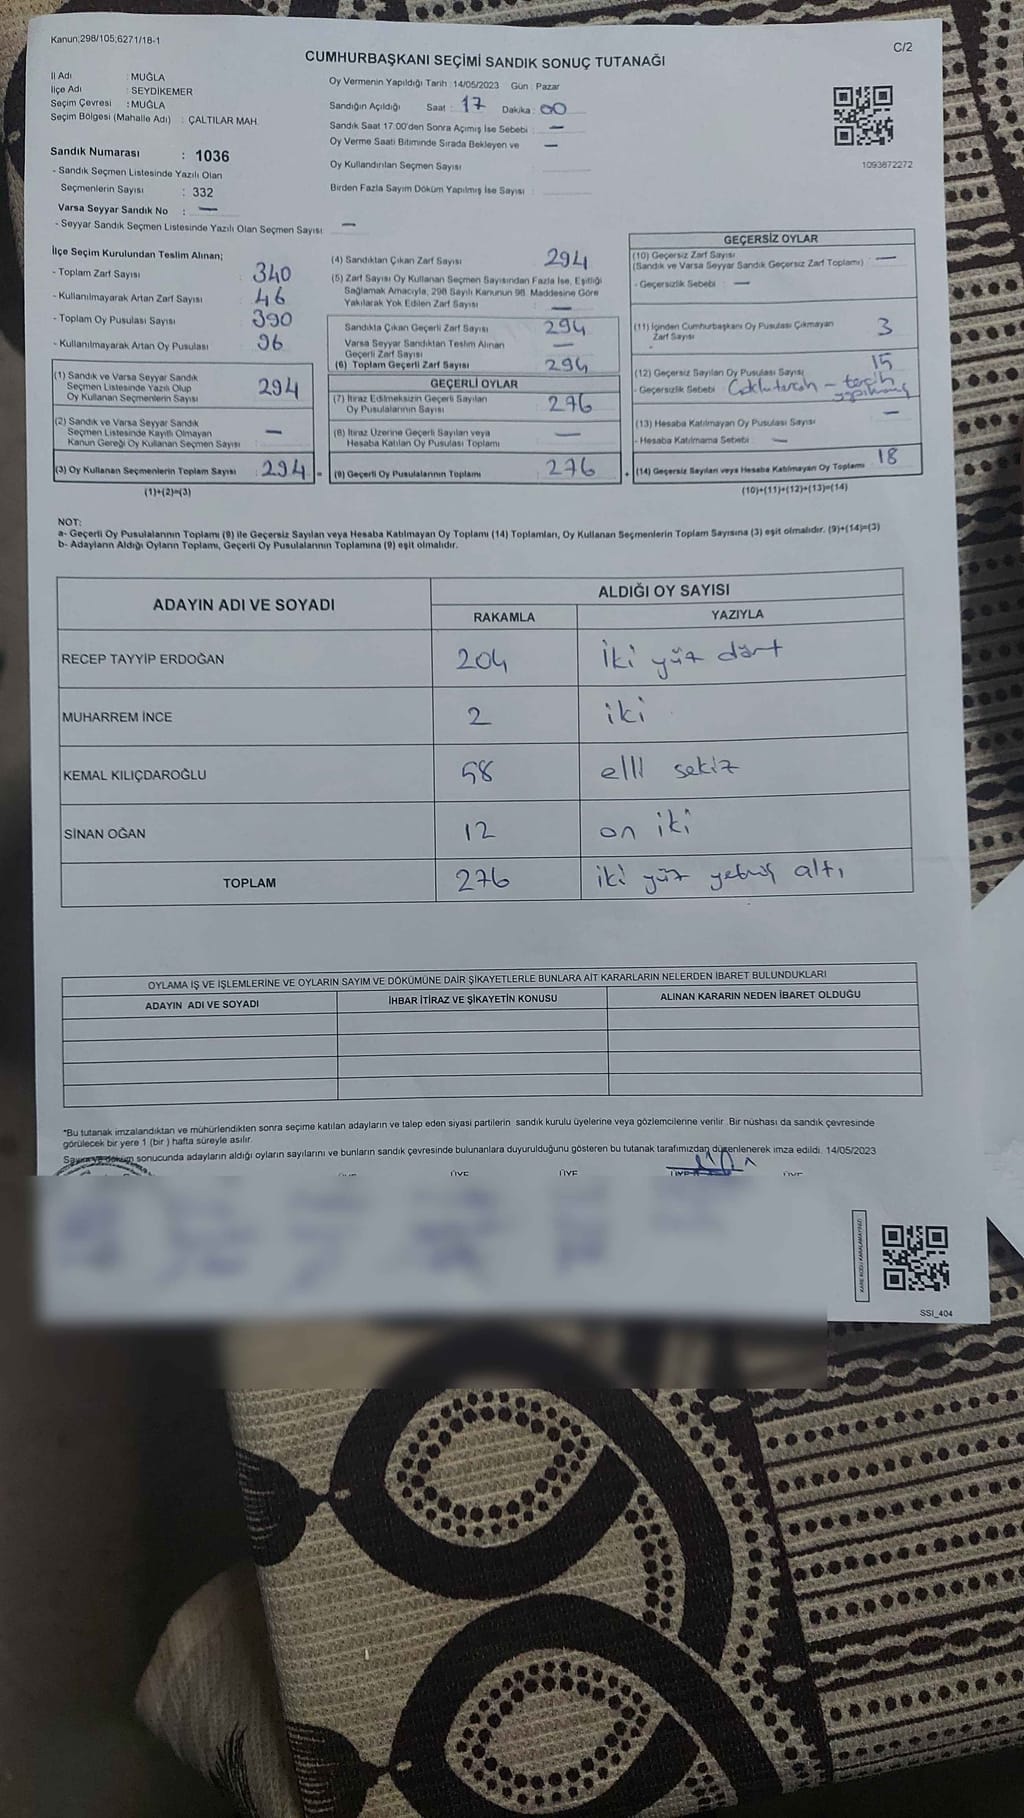 Kanun;298/105;6271/18-1
C/2
CUMHURBAŞKANI SEÇİMİ SANDIK SONUÇ TUTANAĞI
İl Adı : MUĞLA
İlçe Adı : SEYDİKEMER
Seçim Çevresi : MUĞLA
Seçim Bölgesi (Mahalle Adı) : ÇALTILAR MAH.
Sandık Numarası : 1036
- Sandık Seçmen Listesinde Yazılı Olan
Seçmenlerin Sayısı : 332
Varsa Seyyar Sandık No : —
- Seyyar Sandık Seçmen Listesinde Yazılı Olan Seçmen Sayısı : —
Oy Vermenin Yapıldığı Tarih : 14/05/2023 Gün : Pazar
Sandığın Açıldığı Saat : 17 Dakika : 00
Sandık Saat 17:00'den Sonra Açımış İse Sebebi : —
Oy Verme Saati Bitiminde Sırada Bekleyen ve —
Oy Kullandırılan Seçmen Sayısı
Birden Fazla Sayım Döküm Yapılmış İse Sayısı :
1093872272
İlçe Seçim Kurulundan Teslim Alınan;
- Toplam Zarf Sayısı : 340
- Kullanılmayarak Artan Zarf Sayısı : 46
- Toplam Oy Pusulası Sayısı : 390
- Kullanılmayarak Artan Oy Pusulası : 96
(1) Sandık ve Varsa Seyyar Sandık
Seçmen Listesinde Yazılı Olup
Oy Kullanan Seçmenlerin Sayısı : 294
(2) Sandık ve Varsa Seyyar Sandık
Seçmen Listesinde Kayıtlı Olmayan
Kanun Gereği Oy Kullanan Seçmen Sayısı : —
(3) Oy Kullanan Seçmenlerin Toplam Sayısı : 294 =
(1)+(2)=(3)
(4) Sandıktan Çıkan Zarf Sayısı 294
(5) Zarf Sayısı Oy Kullanan Seçmen Sayısından Fazla İse, Eşitliği
Sağlamak Amacıyla, 298 Sayılı Kanunun 98. Maddesine Göre
Yakılarak Yok Edilen Zarf Sayısı : —
Sandıkta Çıkan Geçerli Zarf Sayısı 294
Varsa Seyyar Sandıktan Teslim Alınan
Geçerli Zarf Sayısı —
(6) Toplam Geçerli Zarf Sayısı 294
GEÇERLİ OYLAR
(7) İtiraz Edilmeksizin Geçerli Sayılan
Oy Pusulalarının Sayısı 276
(8) İtiraz Üzerine Geçerli Sayılan veya
Hesaba Katılan Oy Pusulası Toplamı —
(9) Geçerli Oy Pusulalarının Toplamı 276 +
GEÇERSİZ OYLAR
(10) Geçersiz Zarf Sayısı
(Sandık ve Varsa Seyyar Sandık Geçersiz Zarf Toplamı) : —
- Geçersizlik Sebebi : —
(11) İçinden Cumhurbaşkanı Oy Pusulası Çıkmayan
Zarf Sayısı 3
(12) Geçersiz Sayılan Oy Pusulası Sayısı 15
- Geçersizlik Sebebi : – tercih
(13) Hesaba Katılmayan Oy Pusulası Sayısı —
- Hesaba Katılmama Sebebi : —
(14) Geçersiz Sayılan veya Hesaba Katılmayan Oy Toplamı 18
(10)+(11)+(12)+(13)=(14)
NOT:
a- Geçerli Oy Pusulalarının Toplamı (9) ile Geçersiz Sayılan veya Hesaba Katılmayan Oy Toplamı (14) Toplamları, Oy Kullanan Seçmenlerin Toplam Sayısına (3) eşit olmalıdır. (9)+(14)=(3)
b- Adayların Aldığı Oyların Toplamı, Geçerli Oy Pusulalarının Toplamına (9) eşit olmalıdır.
ADAYIN ADI VE SOYADI
ALDIĞI OY SAYISI
RAKAMLA YAZIYLA
RECEP TAYYİP ERDOĞAN 204 iki yüz dört
MUHARREM İNCE 2 iki
KEMAL KILIÇDAROĞLU 58 elli sekiz
SİNAN OĞAN 12 on iki
TOPLAM 276 iki yüz yetmiş altı
OYLAMA İŞ VE İŞLEMLERİNE VE OYLARIN SAYIM VE DÖKÜMÜNE DAİR ŞİKAYETLERLE BUNLARA AİT KARARLARIN NELERDEN İBARET BULUNDUKLARI
ADAYIN ADI VE SOYADI İHBAR İTİRAZ VE ŞİKAYETİN KONUSU ALINAN KARARIN NEDEN İBARET OLDUĞU
*Bu tutanak imzalandıktan ve mühürlendikten sonra seçime katılan adayların ve talep eden siyasi partilerin sandık kurulu üyelerine veya gözlemcilerine verilir. Bir nüshası da sandık çevresinde
görülecek bir yere 1 (bir ) hafta süreyle asılır.
Sayım ve döküm sonucunda adayların aldığı oyların sayılarını ve bunların sandık çevresinde bulunanlara duyurulduğunu gösteren bu tutanak tarafımızdan düzenlenerek imza edildi. 14/05/2023
ÜYE ÜYE ÜYE ÜYE
KARE KODU KARALAMAYINIZ!
SSİ_404